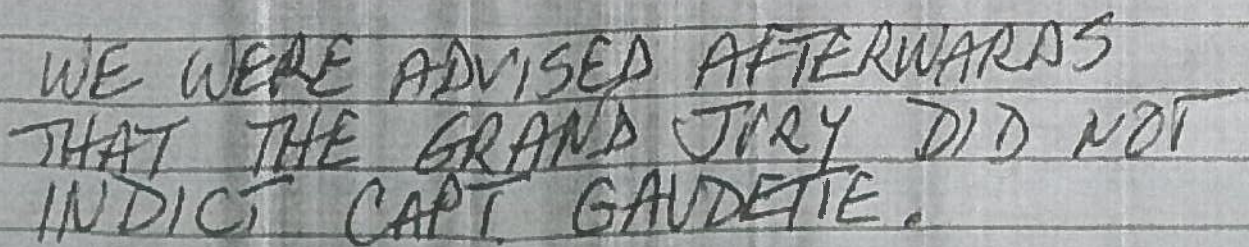 WE WERE ADVISED AFTERWARDS
THAT THE GRAND JURY DID NOT
INDICT CAPT. GAUDETTE.